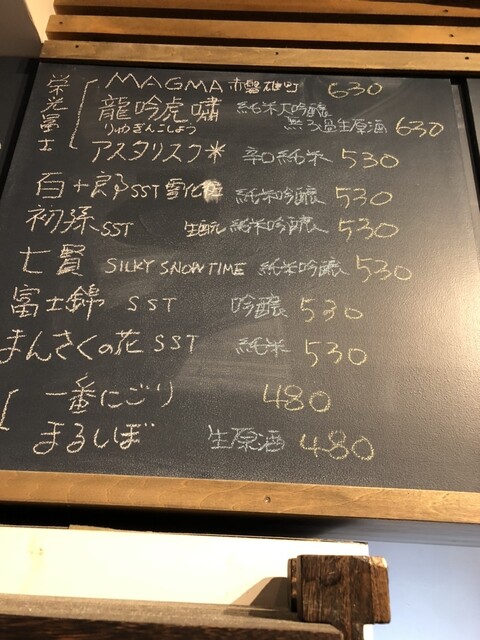 栄光冨士
MAGMA 赤磐雄町 630
龍吟虎嘯 純米大吟醸
りゅうぎんこしょう 無ろ過生原酒 630
アスタリスク* 辛口純米 530
百十郎 SST 雪化粧 純米吟醸 530
初孫 SST 生酛 純米吟醸 530
七賢 SILKY SNOW TIME 純米吟醸 530
富士錦 SST 吟醸 530
まんさくの花 SST 純米 530
一番にごり 480
まるしぼ 生原酒 480